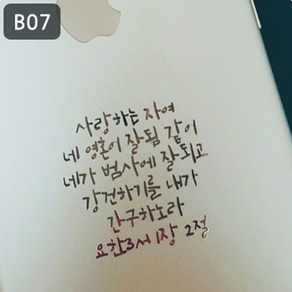 B07
사랑하는 자여
네 영혼이 잘됨 같이
네가 범사에 잘되고
강건하기를 내가
간구하노라
요한3서 1장 2절